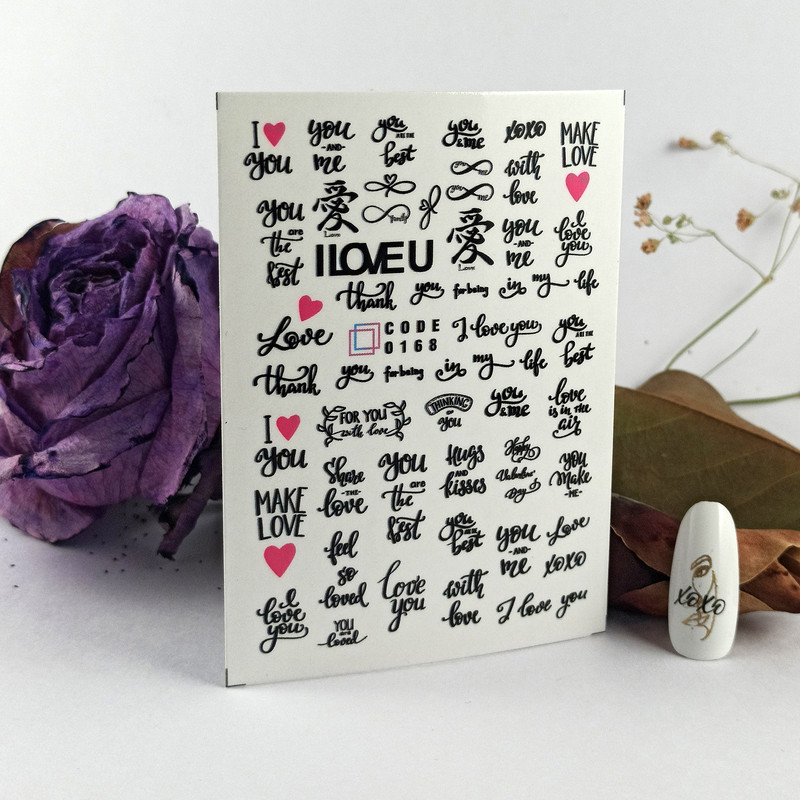 I
You
you
-AND-
me
you
ARE THE
best
you
&me
xoxo
MAKE
LOVE
with
love
You
are
the
Best
愛
Love
family
愛
Love
you
-AND-
me
I
love
you
I LOVE U
thank you for being in my life
Love
CODE
0168
I love you
you
ARE THE
best
thank you for being in my life
I
You
FOR YOU
with love
THINKING
OF
You
you
&me
love
is in the
air
MAKE
LOVE
Share
-THE-
love
You
are
the
Best
Hugs
AND
kisses
Happy
Valentine'
Day
you
Make
-ME-
feel
so
loved
you
ARE THE
best
you
-AND-
me
Love
xoxo
I
love
you
YOU
are
loved
love
you
with
love
I love you
xoxo